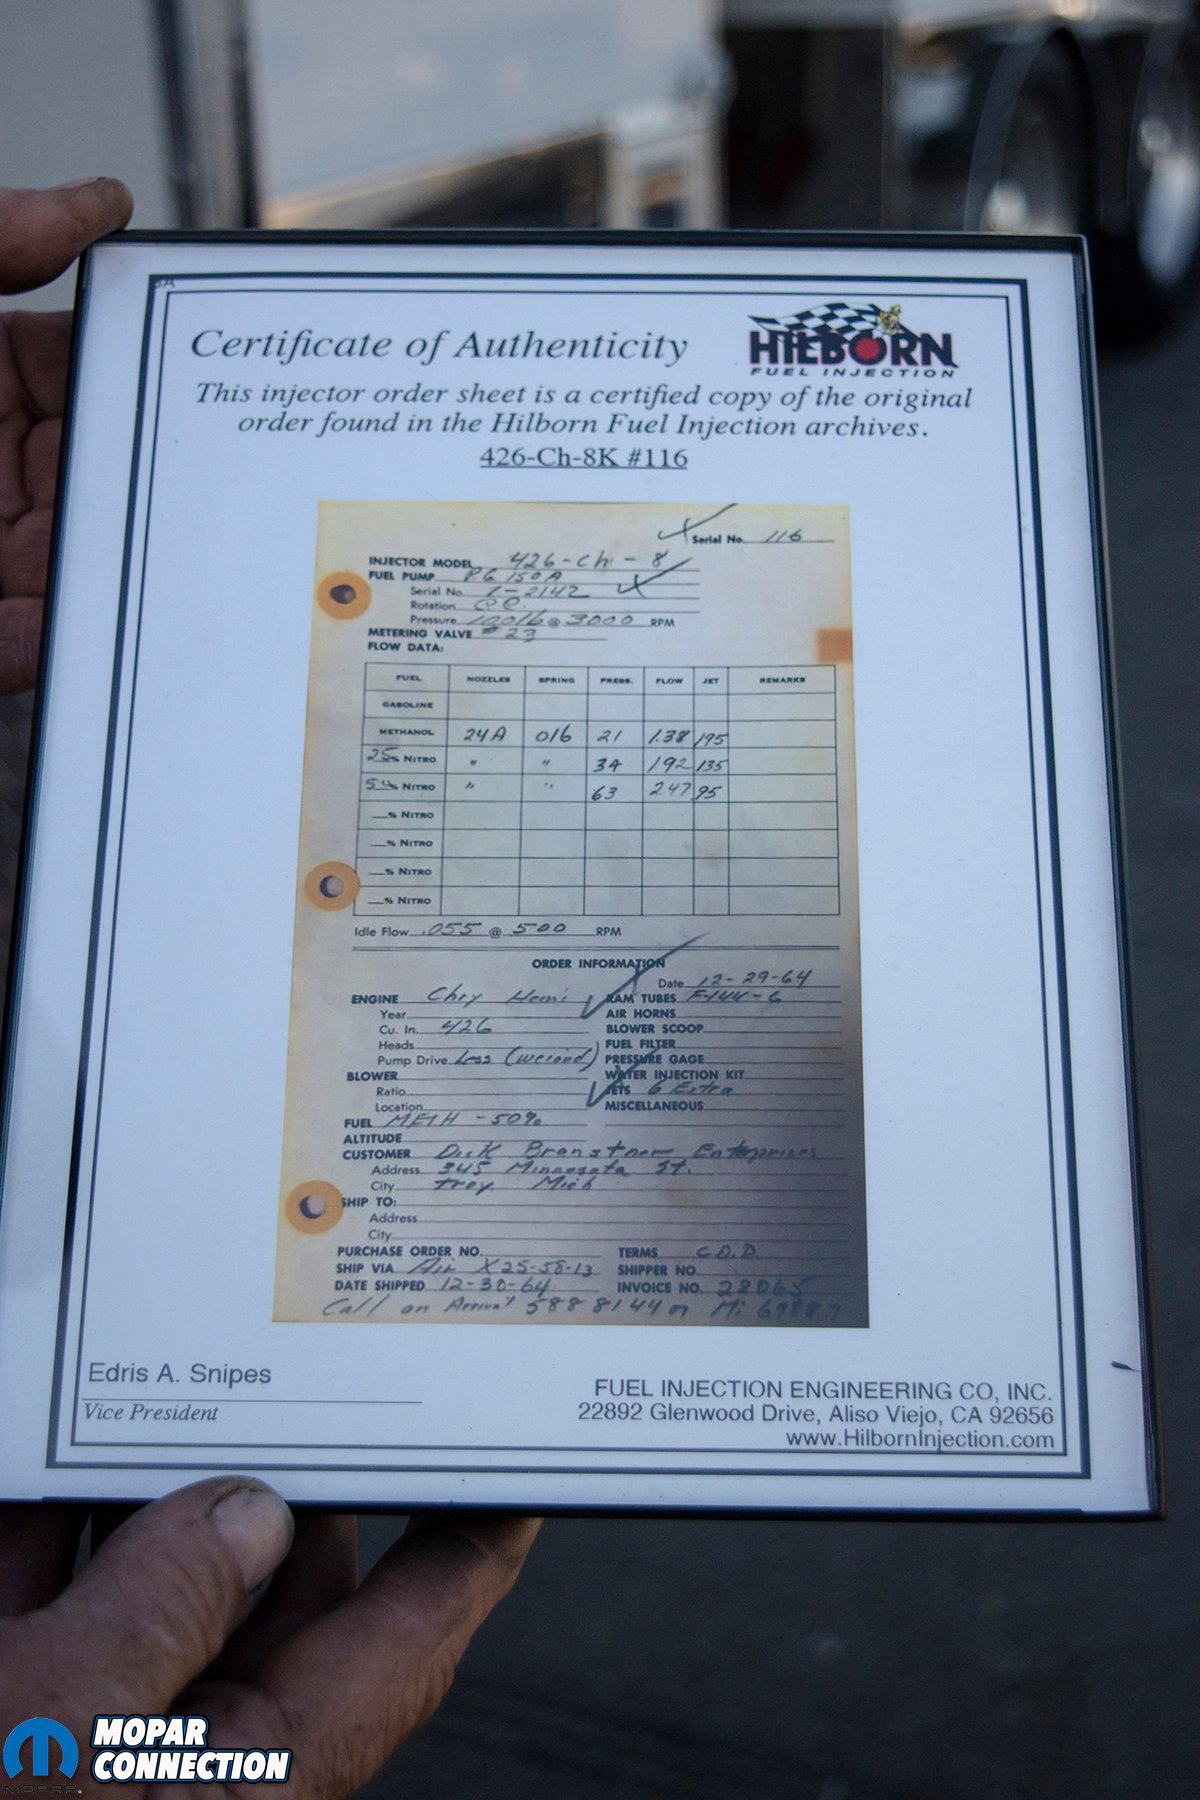 Certificate of Authenticity
HILBORN
FUEL INJECTION
This injector order sheet is a certified copy of the original
order found in the Hilborn Fuel Injection archives.
426-Ch-8K #116
Serial No. 116
INJECTOR MODEL 426-Ch-8
FUEL PUMP P.G 150A
Serial No. 1-2142
Rotation
Pressure 100 lb @ 3000 RPM
METERING VALVE #23
FLOW DATA:
FUEL NOZZLES SPRING PRESS. FLOW JET REMARKS
GASOLINE
METHANOL 24A 016 21 1.38 195
25% NITRO " " 34 192 135
% NITRO " " 63 2.47 95
% NITRO
% NITRO
% NITRO
% NITRO
Idle Flow .055 @ 500 RPM
ORDER INFORMATION
Date 12-29-64
ENGINE Chry Hemi RAM TUBES F-144-6
Year AIR HORNS
Cu. In. 426 BLOWER SCOOP
Heads FUEL FILTER
Pump Drive Less (Weiand) PRESSURE GAGE
BLOWER WATER INJECTION KIT
Ratio JETS 6 Extra
Location MISCELLANEOUS
FUEL METH - 50%
ALTITUDE
CUSTOMER Dick Branstner Enterprises
Address 345 Minnesota St.
City Troy. Mich
SHIP TO:
Address
City
PURCHASE ORDER NO. TERMS C.O.D
SHIP VIA Air X25-58-13 SHIPPER NO.
DATE SHIPPED 12-30-64 INVOICE NO. 28065
Call on Arrival 588 8144 or Mi
Edris A. Snipes
Vice President
FUEL INJECTION ENGINEERING CO, INC.
22892 Glenwood Drive, Aliso Viejo, CA 92656
www.HilbornInjection.com
MOPAR
CONNECTION
MOPAR